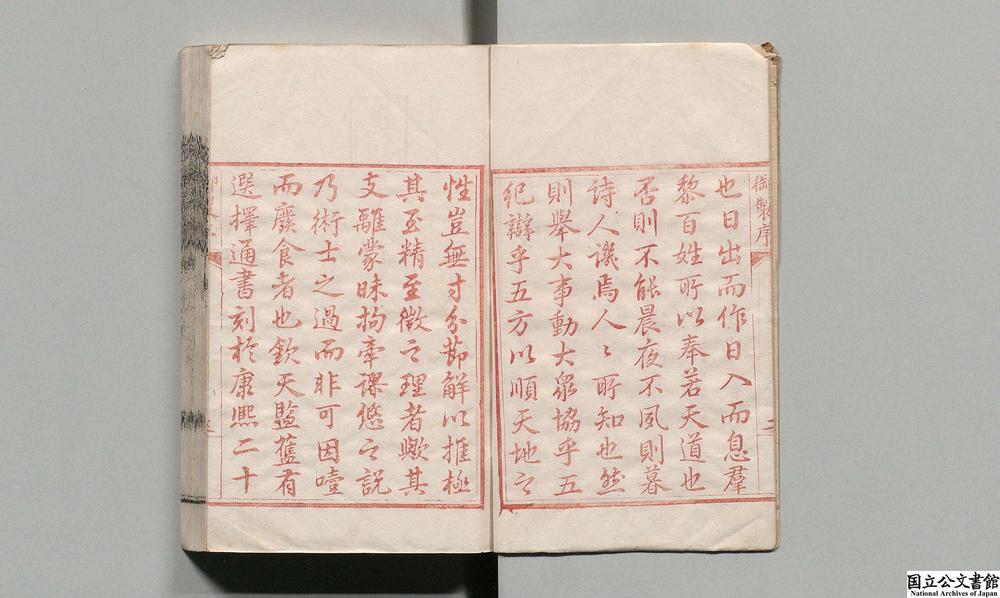 御製序
也日出而作日入而息羣
黎百姓所以奉若天道也
否則不能晨夜不夙則暮
詩人譏焉人〻所知也然
則舉大事動大衆協乎五
紀辯乎五方以順天地之
二
性豈無寸分節解以推極
其至精至微之理者歟其
支離蒙昧拘牽謬悠之說
乃術士之過而非可因噎
而廢食者也欽天監舊有
選擇通書刻於康熙二十
国立公文書館
National Archives of Japan